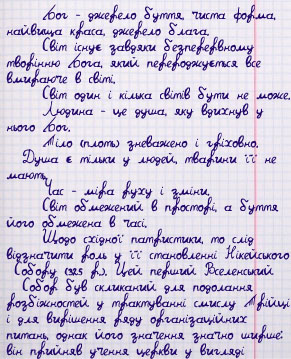 Бог - джерело буття, чиста форма,
найвища краса, джерело блага.
Світ існує завдяки безперервному
творінню Бога, який перероджується все
вмираюче в світі.
Світ один і кілька світів бути не може.
Людина - це душа, яку вдихнув у
нього Бог.
Тіло (плоть) зневажено і гріховно.
Душа є тільки у людей, тварини її не
мають.
Час - міра руху і зміни.
Світ обмежений в просторі, а буття
його обмежена в часі.
Щодо східної патристики, то слід
відзначити роль у її становленні Нікейського
Собору (325 р.). Цей перший Вселенський
Собор був скликаний для подолання
розбіжностей у трактуванні смислу Трійці
і для вирішення ряду організаційних
питань, однак його значення значно ширше:
він прийняв учення церкви у вигляді